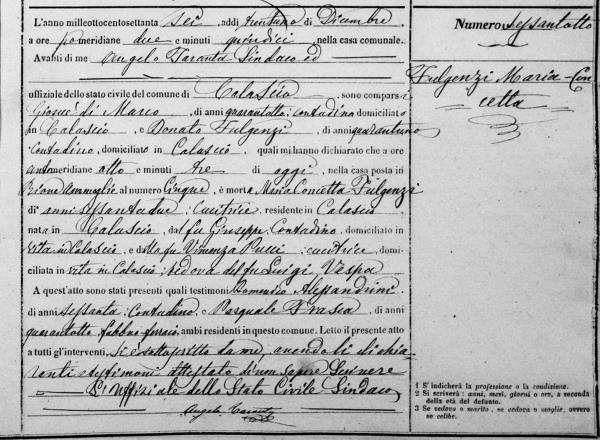 L'anno milleottocentosettanta sei, addì trentuno di Dicembre
a ore pomeridiane due e minuti quindici, nella casa comunale.
Avanti di me Angelo Taranta Sindaco ed
uffiziale dello stato civile del comune di Calascio, sono comparsi
Giosuè di Marco, di anni quarantotto; contadino domiciliato
in Calascio, e Donato Fulgenzi, di anni quarantuno
contadino, domiciliato in Calascio quali mi hanno dichiarato che a ore
antimeridiane otto e minuti tre di oggi, nella casa posta in
Rione al numero Cinque, è morta Maria Concetta Fulgenzi
di anni sessantadue; cucitrice, residente in Calascio
nata in Calascio, da fu Giuseppe, Contadino, domiciliato in
vita in Calascio, e dalla fu Vincenza Pucci; cucitrice, domi-
ciliata in vita in Calascio; vedova del fu Luigi Vespa
A quest'atto sono stati presenti quali testimoni Domenico Alessandrini
di anni sessanta; Contadino, e Pasquale Frasca, di anni
quarantotto fabbro ferraio, ambi residenti in questo comune. Letto il presente atto
a tutti gl'intervenuti, si è sottoscritto da me, avendo li dichia-
ranti e testimoni attestato di non sapere scrivere
L'Uffiziale dello Stato Civile Sindaco
Angelo Taranta
Numero sessantotto
Fulgenzi Maria Con-
cetta
1 S' indicherà la professione o la condizione.
2 Si scriverà: anni, mesi, giorni o ore, a seconda
della età del defunto.
3 Se vedovo o marito, se vedova o moglie, ovvero
se celibe.